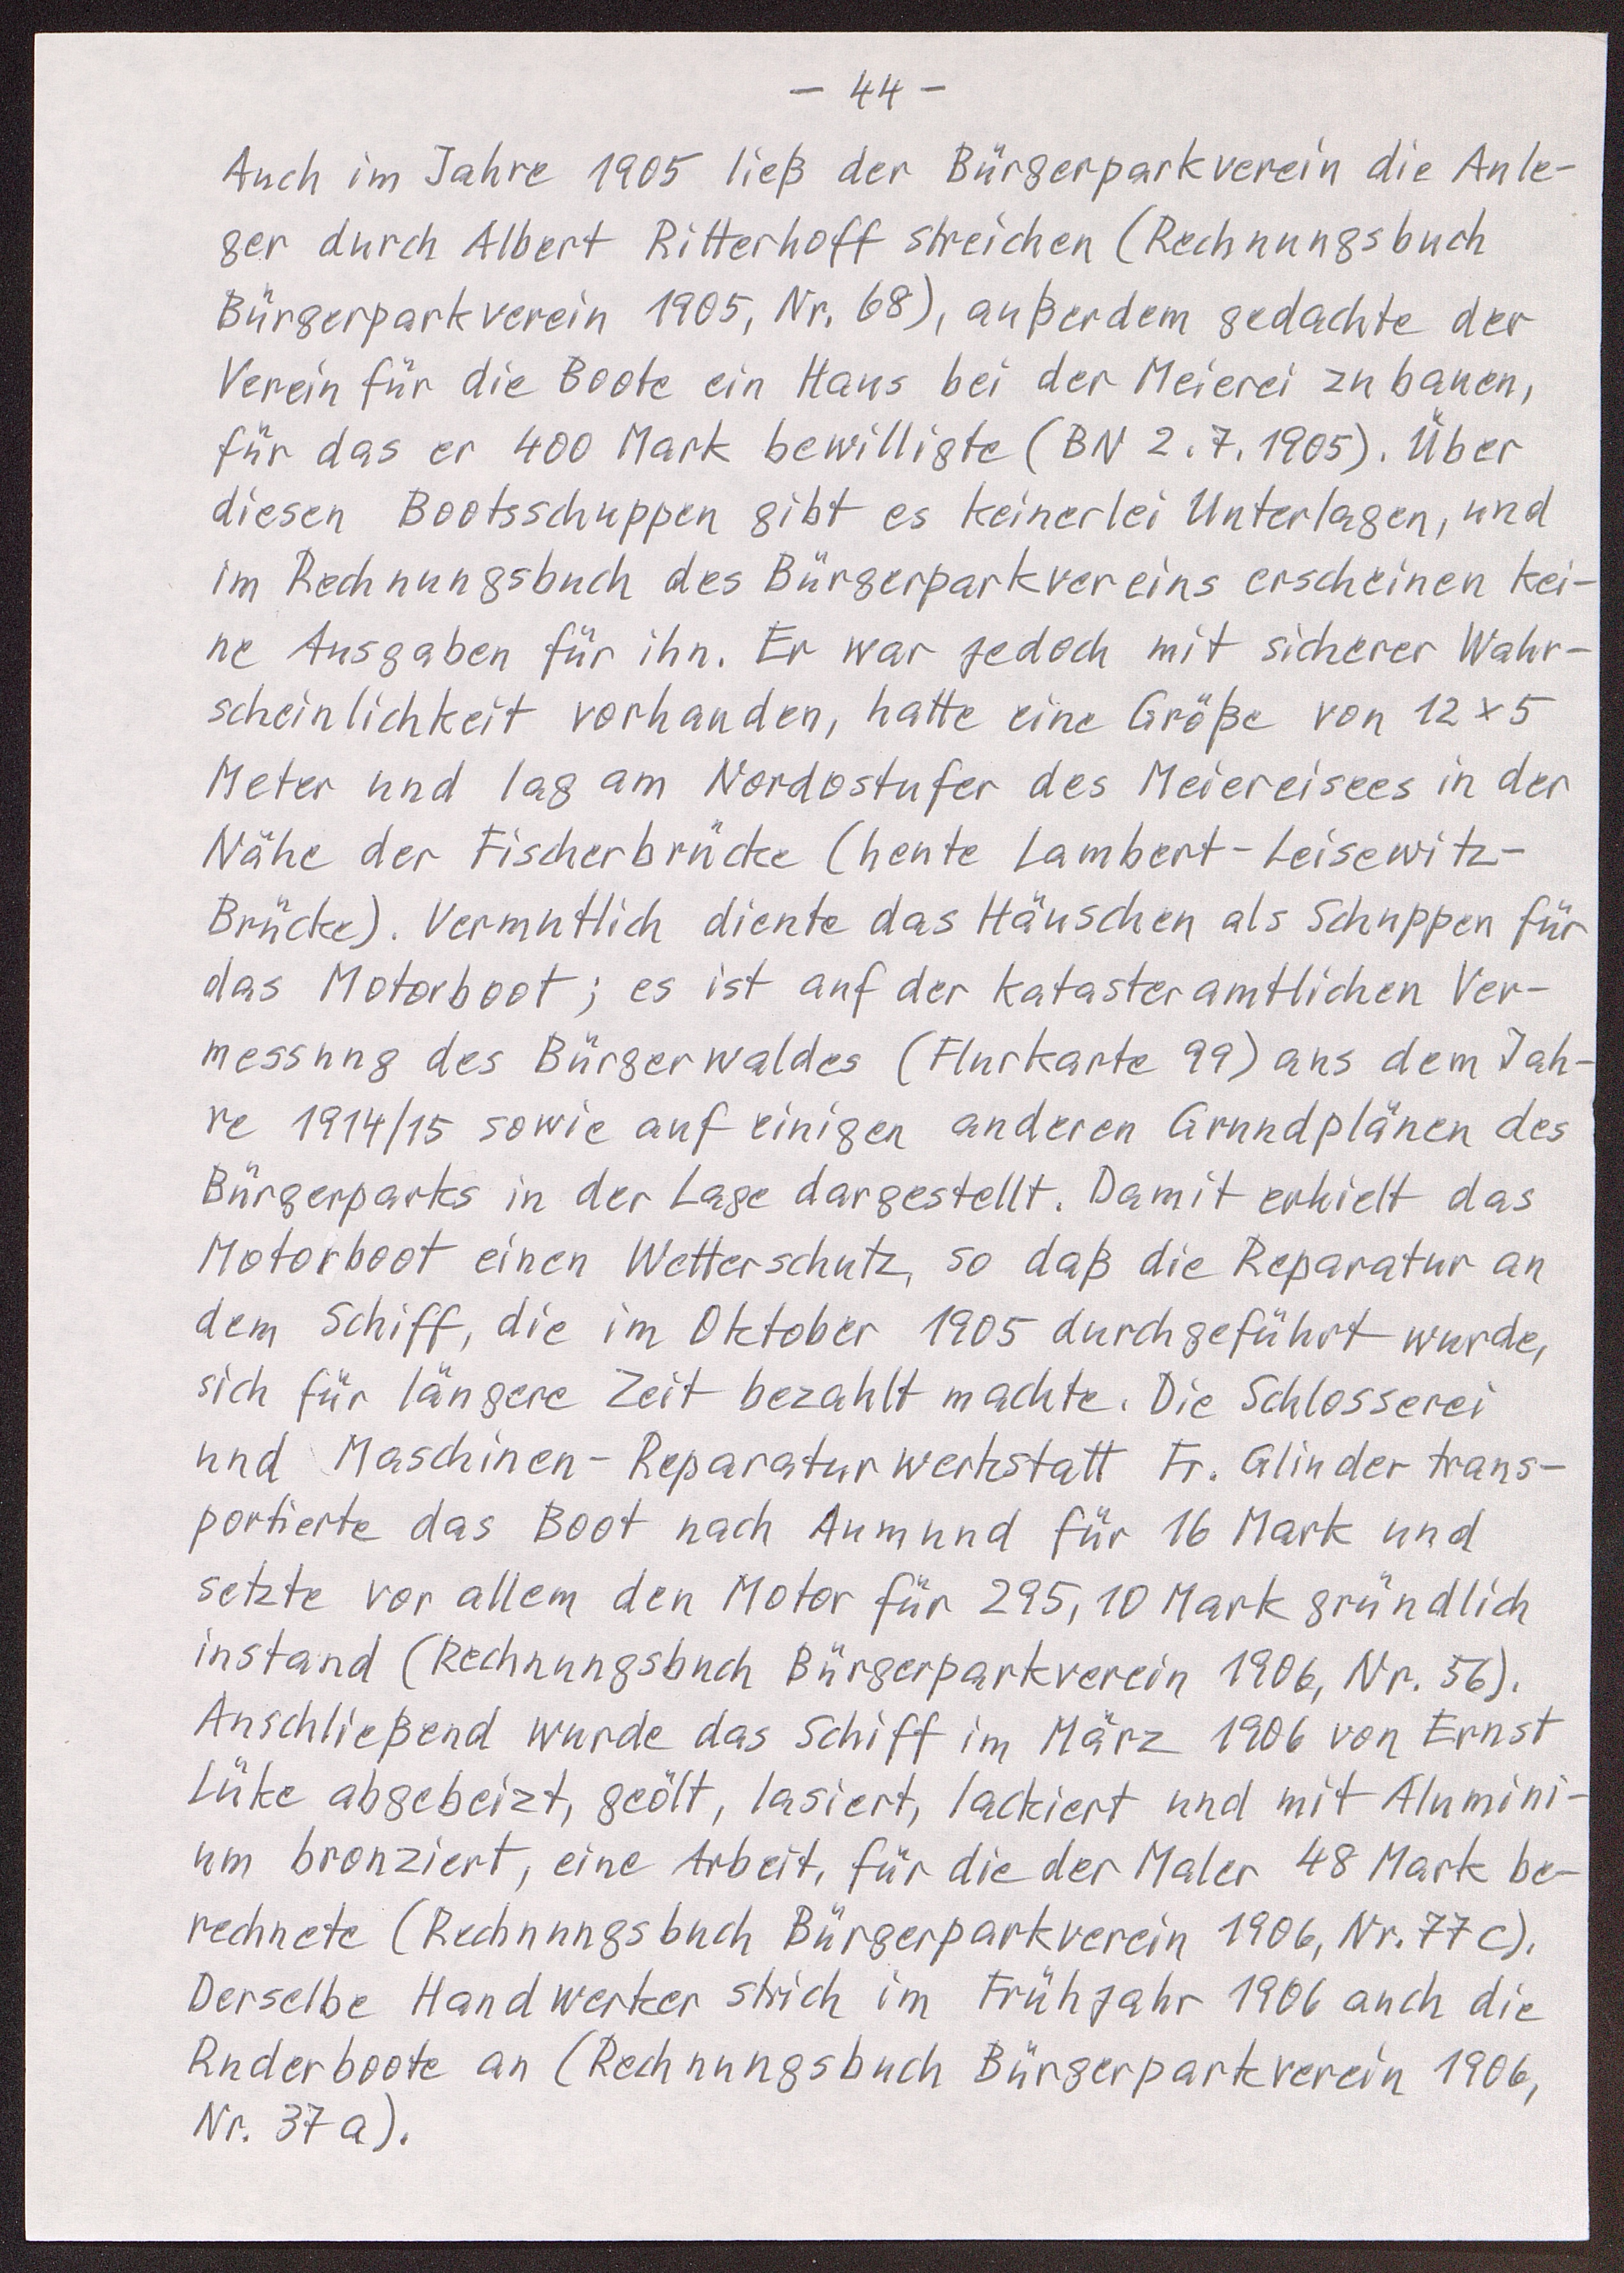 - 44 -
Auch im Jahre 1905 ließ der Bürgerparkverein die Anle-
ger durch Albert Ritterhoff streichen (Rechnungsbuch
Bürgerparkverein 1905, Nr. 68), außerdem gedachte der
Verein für die Boote ein Haus bei der Meierei zu bauen,
für das er 400 Mark bewilligte (BN 2.7.1905). Über
diesen Bootsschuppen gibt es keinerlei Unterlagen, und
im Rechnungsbuch des Bürgerparkvereins erscheinen kei-
ne Ausgaben für ihn. Er war jedoch mit sicherer Wahr-
scheinlichkeit vorhanden, hatte eine Größe von 12 x 5
Meter und lag am Nordostufer des Meiereisees in der
Nähe der Fischerbrücke (heute Lambert-Leisewitz-
Brücke). Vermutlich diente das Häuschen als Schuppen für
das Motorboot; es ist auf der katasteramtlichen Ver-
messung des Bürgerwaldes (Flurkarte 99) aus dem Jah-
re 1914/15 sowie auf einigen anderen Grundplänen des
Bürgerparks in der Lage dargestellt. Damit erhielt das
Motorboot einen Wetterschutz, so daß die Reparatur an
dem Schiff, die im Oktober 1905 durchgeführt wurde,
sich für längere Zeit bezahlt machte. Die Schlosserei
und Maschinen-Reparaturwerkstatt Fr. Glinder trans-
portierte das Boot nach Aumund für 16 Mark und
setzte vor allem den Motor für 295,10 Mark gründlich
instand (Rechnungsbuch Bürgerparkverein 1906, Nr. 56).
Anschließend wurde das Schiff im März 1906 von Ernst
Lüke abgebeizt, geölt, lasiert, lackiert und mit Alumini-
um bronziert, eine Arbeit, für die der Maler 48 Mark be-
rechnete (Rechnungsbuch Bürgerparkverein 1906, Nr. 77 c).
Derselbe Handwerker strich im Frühjahr 1906 auch die
Ruderboote an (Rechnungsbuch Bürgerparkverein 1906,
Nr. 37 a).